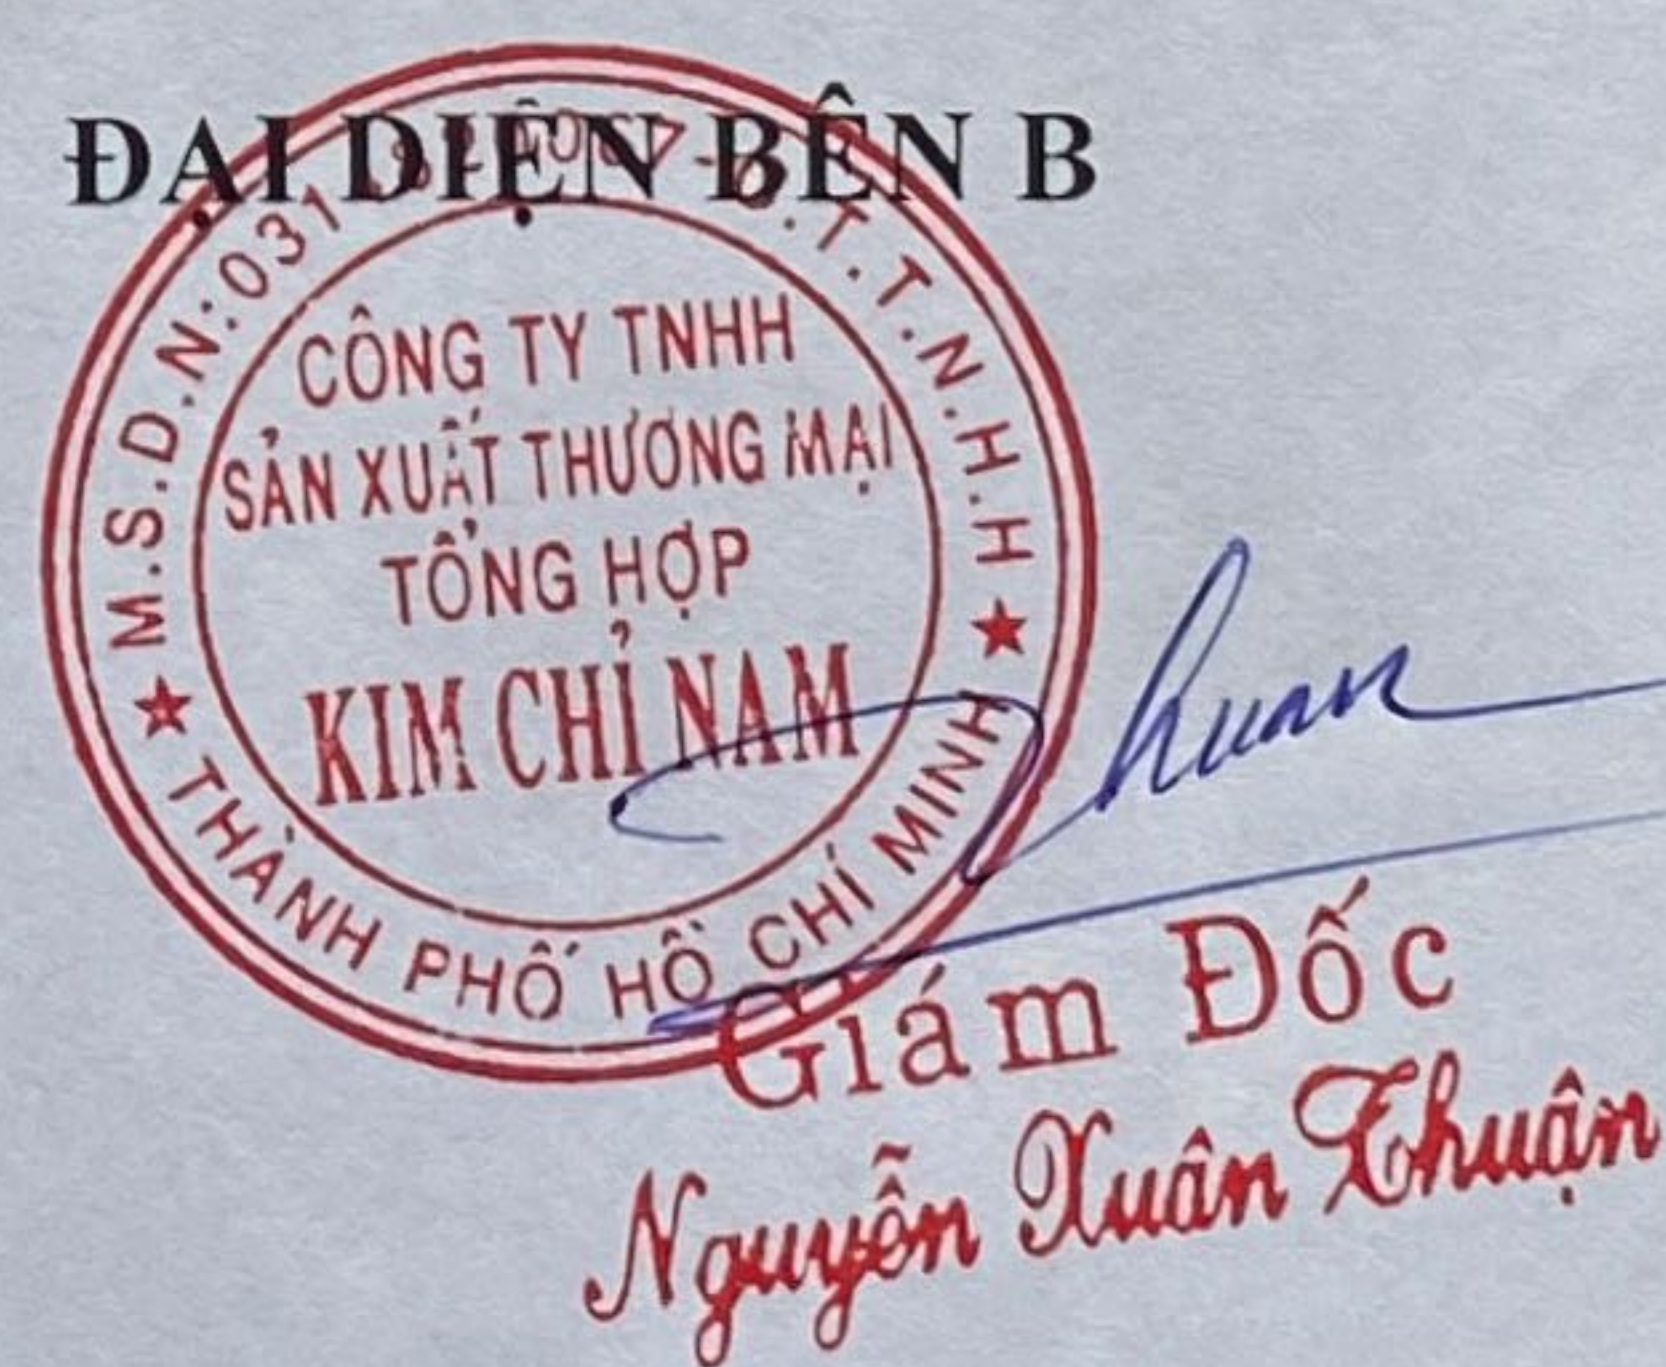 ĐẠI DIỆN BÊN B
CÔNG TY TNHH
SẢN XUẤT THƯƠNG MẠI
TỔNG HỢP
KIM CHỈ NAM
T.T.N.H.H
THÀNH PHỐ HỒ CHÍ MINH
Giám Đốc
Nguyễn Xuân Thuận